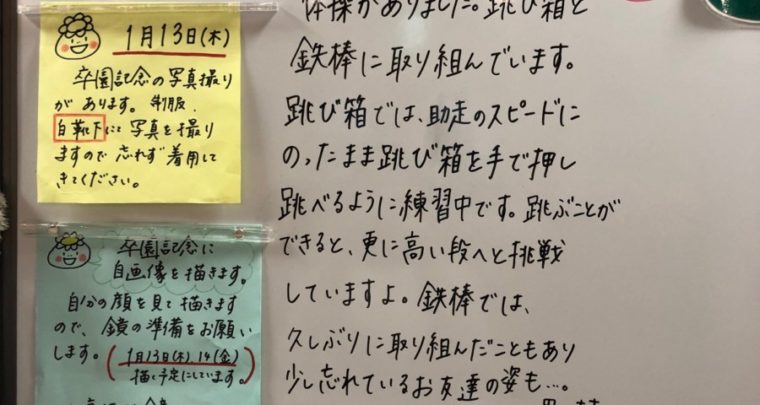 1月13日(木)
卒園記念の写真撮り
があります。制服、
白靴下にて写真を撮り
ますので忘れず着用して
きてください。
卒園記念に
自画像を描きます。
自分の顔を見て描きます
ので、鏡の準備をお願い
します。(1月13日(木),14(金)
描く予定にしています。)
体操がありました。跳び箱と
鉄棒に取り組んでいます。
跳び箱では、助走のスピードに
のったまま跳び箱を手で押し
跳べるように練習中です。跳ぶことが
できると、更に高い段へと挑戦
していますよ。鉄棒では、
久しぶりに取り組んだこともあり
少し忘れているお友達の姿も…。